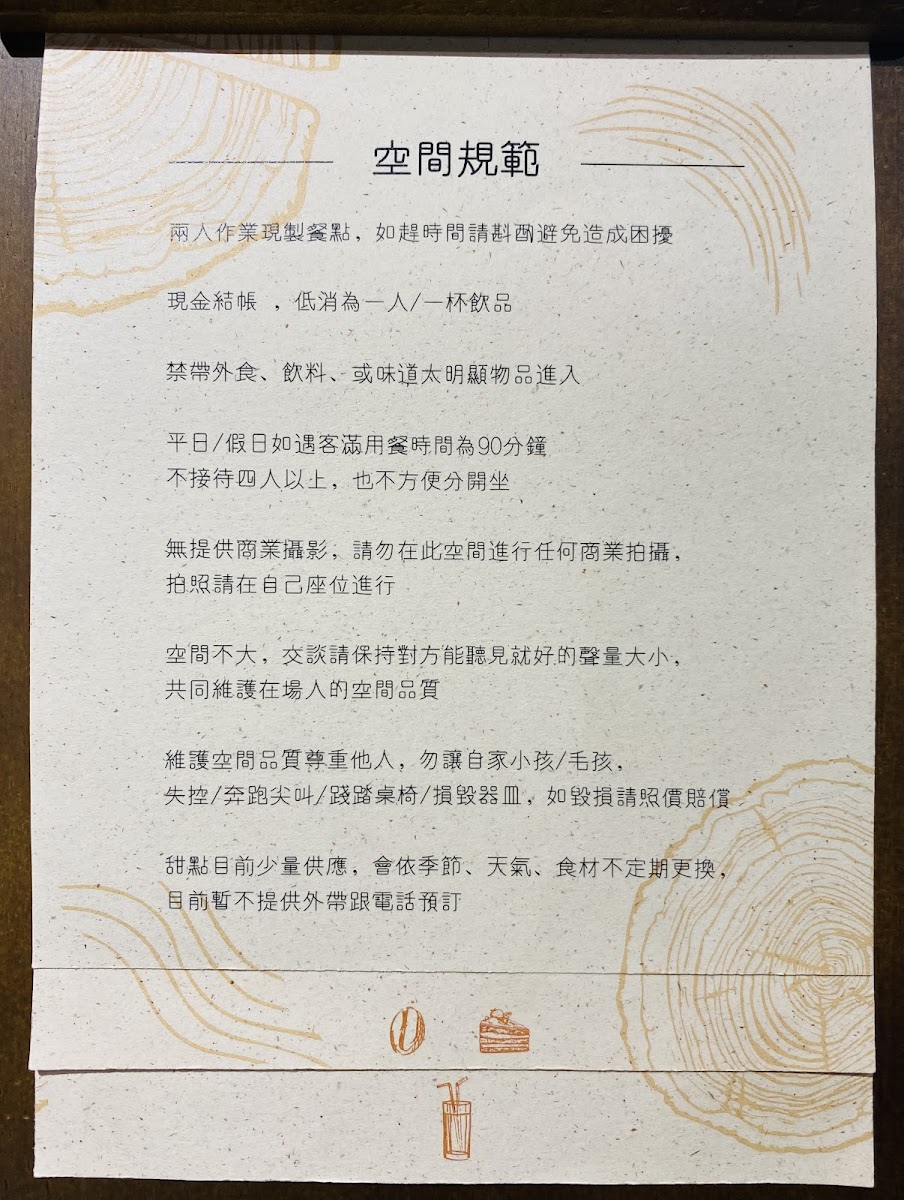 空間規範
兩人作業現製餐點，如趕時間請斟酌避免造成困擾
現金結帳 ，低消為一人/一杯飲品
禁帶外食、飲料、或味道太明顯物品進入
平日/假日如遇客滿用餐時間為90分鐘
不接待四人以上，也不方便分開坐
無提供商業攝影，請勿在此空間進行任何商業拍攝，
拍照請在自己座位進行
空間不大，交談請保持對方能聽見就好的聲量大小，
共同維護在場人的空間品質
維護空間品質尊重他人，勿讓自家小孩/毛孩，
失控/奔跑尖叫/踐踏桌椅/損毀器皿，如毀損請照價賠償
甜點目前少量供應，會依季節、天氣、食材不定期更換，
目前暫不提供外帶跟電話預訂